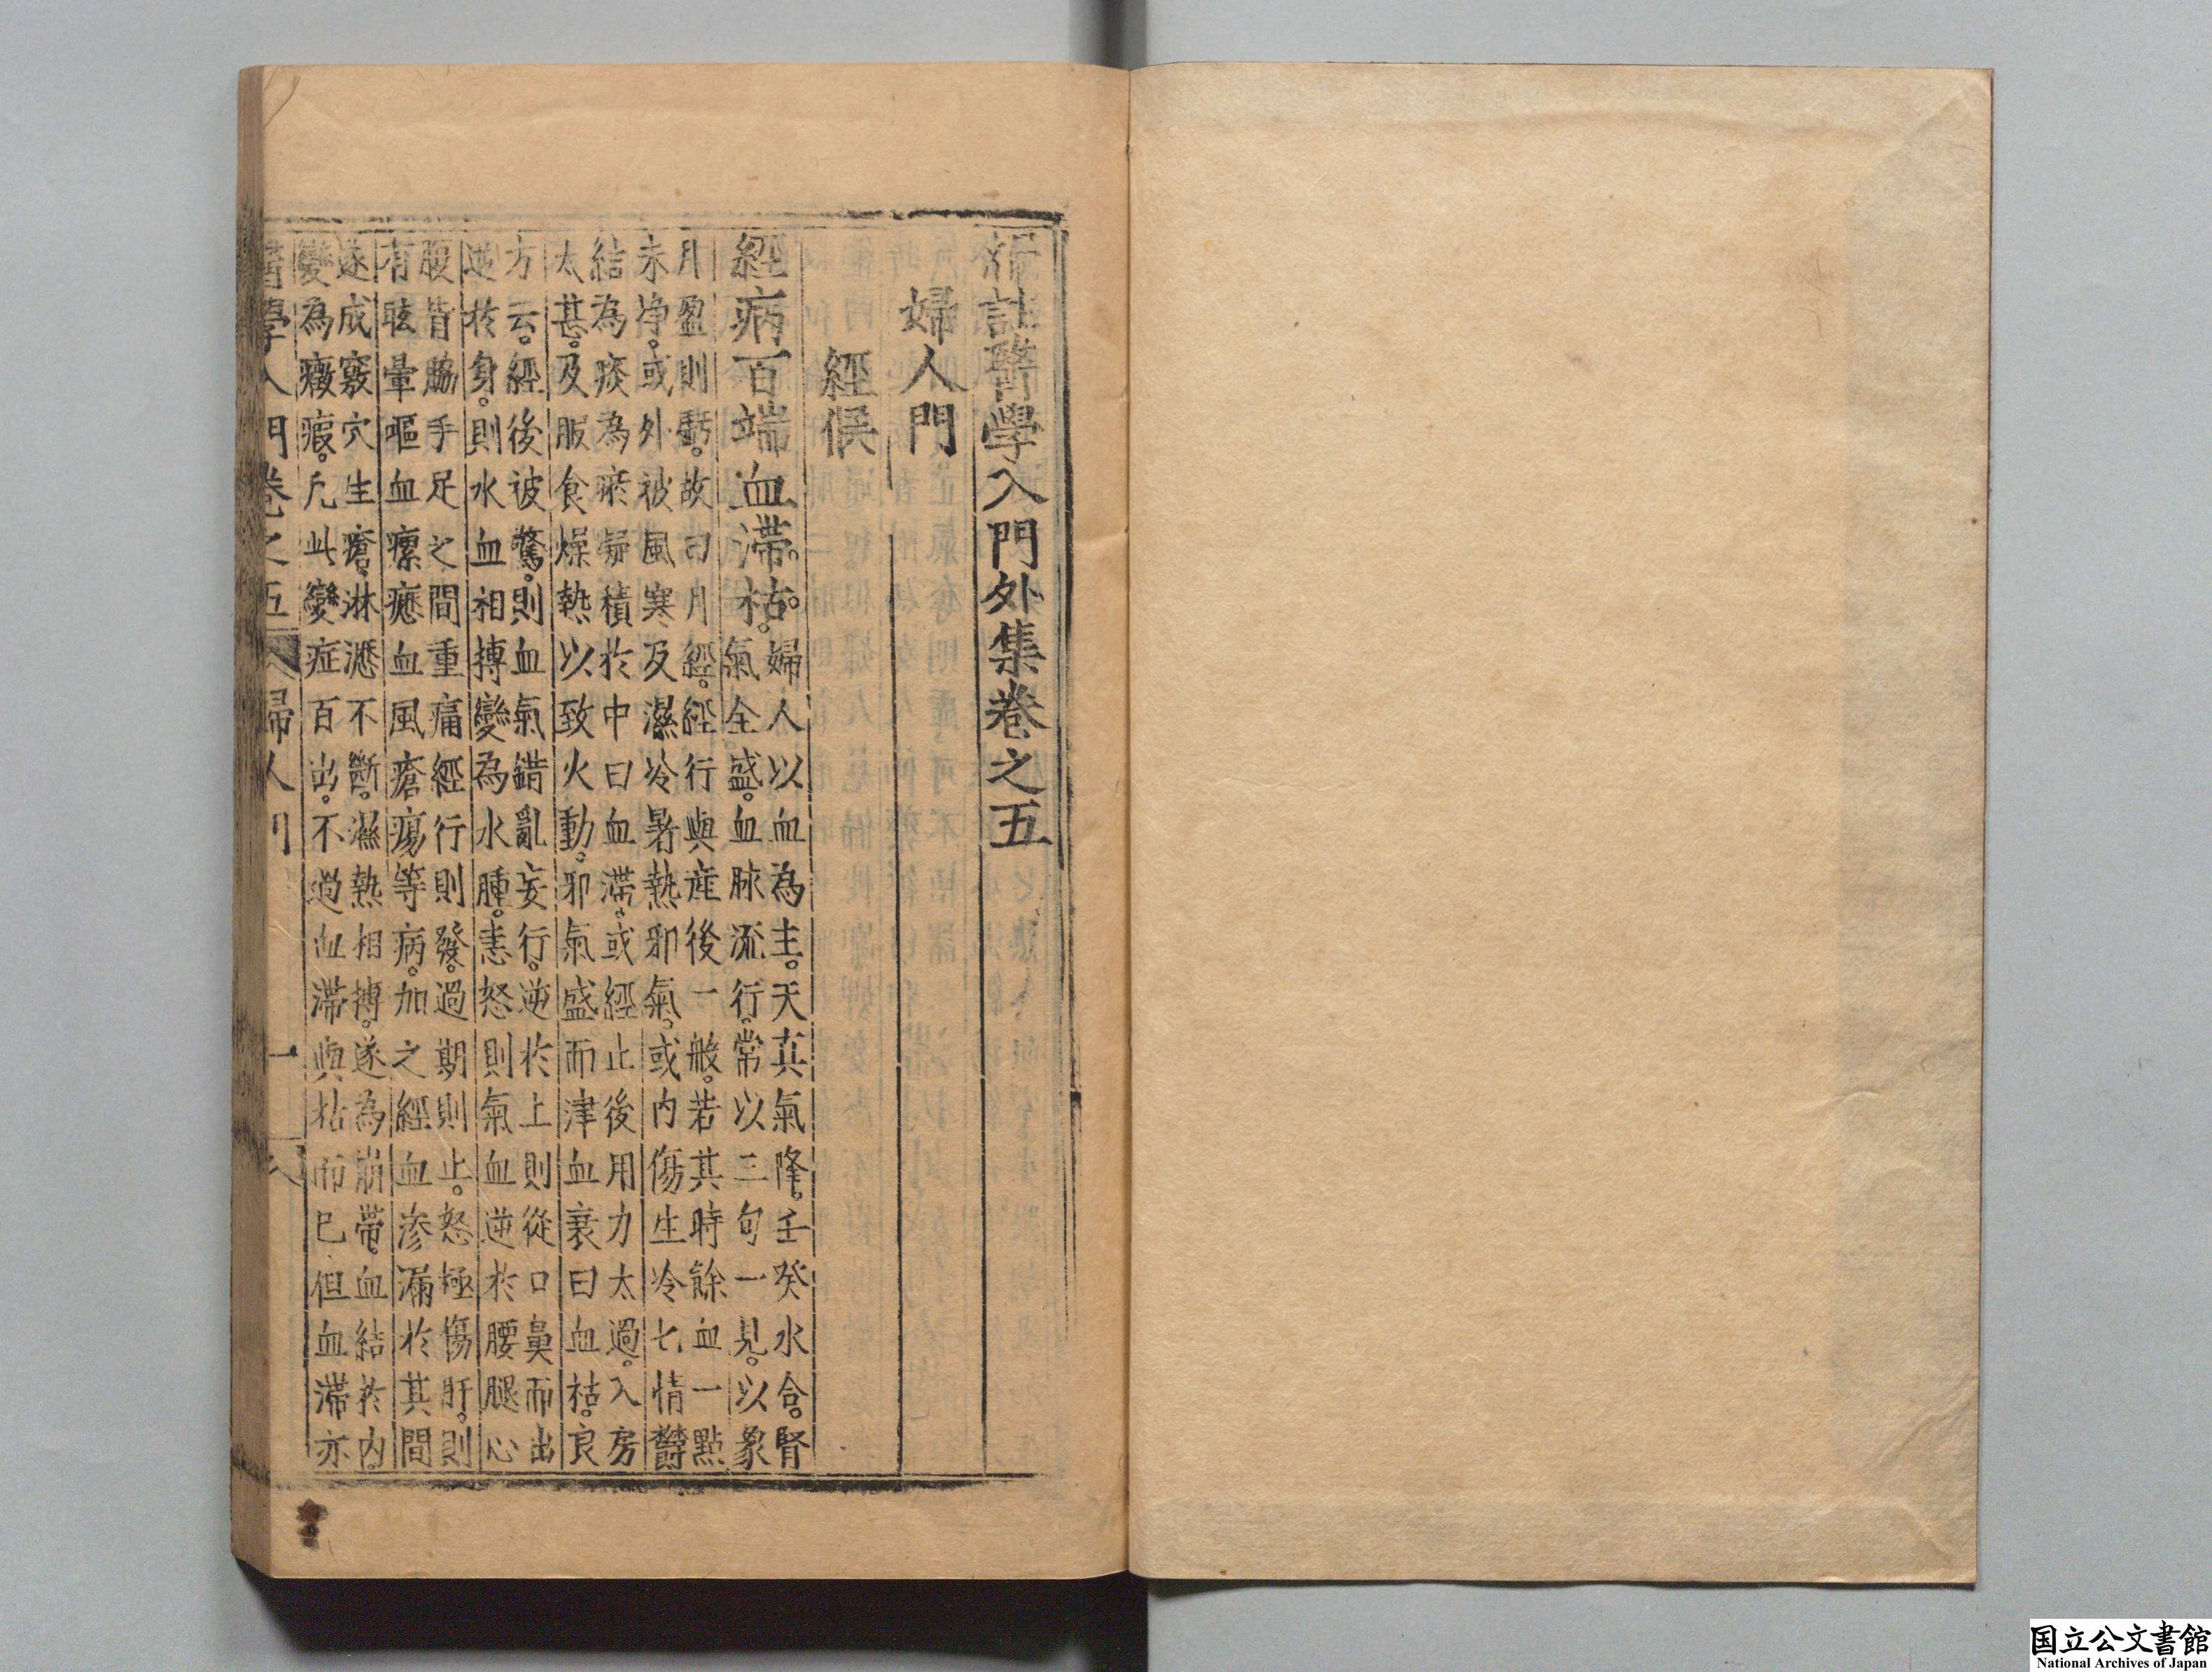 編註醫學入門外集卷之五
婦人門
經候
經病百端血滯。枯。
婦人以血為主。天真氣降。壬癸水合。腎
氣全盛。血脉流行。常以三旬一見。以象
月盈則虧。故曰月經。經行與産後一般。若其時餘血一點
未净。或外被風寒及濕冷暑熱邪氣。或內傷生冷七情鬱
結為痰為瘀凝積於中曰血滯。或經止後用力太過。入房
太甚。及服食燥熱以致火動。邪氣盛而津血衰曰血枯。良
方云。經後被驚。則血氣錯亂妄行。逆於上則從口鼻而出
逆於身。則水血相搏變為水腫。恚怒則氣血逆於腰腿心
腹背脇手足之間重痛經行則發。過期則止。怒極傷肝。則
有眩暈嘔血瘰癧血風瘡瘍等病。加之經血滲漏於其間
遂成竅穴生瘡。淋瀝不斷。濕熱相搏。遂為崩帶。血結於內
變為癥瘕。凡此變症百出。不過血滯與枯而已但血滯亦
醫學入門卷之五 婦人門 一
国立公文書館
National Archives of Japan